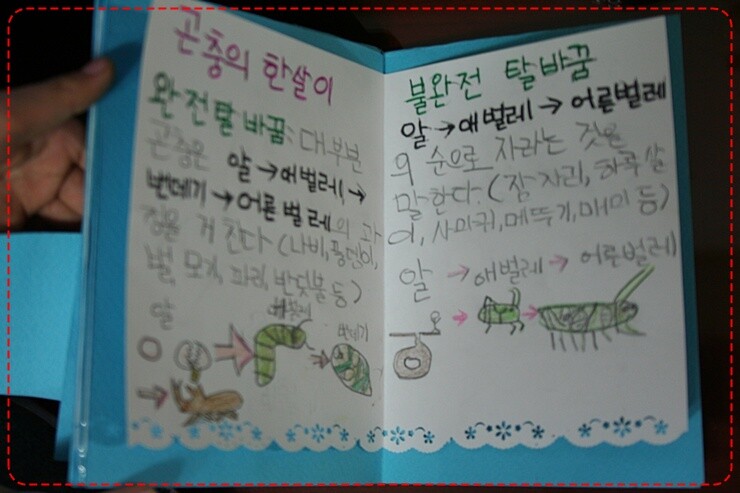 곤충의 한살이
완전탈바꿈: 대부분
곤충은 알→애벌레→
번데기→어른벌레의 과
정을 거친다 (나비, 풍뎅이,
벌, 모기, 파리, 반딧불 등)
알
애벌레
번데기
불완전 탈바꿈
알→애벌레→어른벌레
의 순으로 자라는 것을
말한다. (잠자리, 하루살
이, 사마귀, 메뚜기, 매미 등)
알 → 애벌레 → 어른벌레